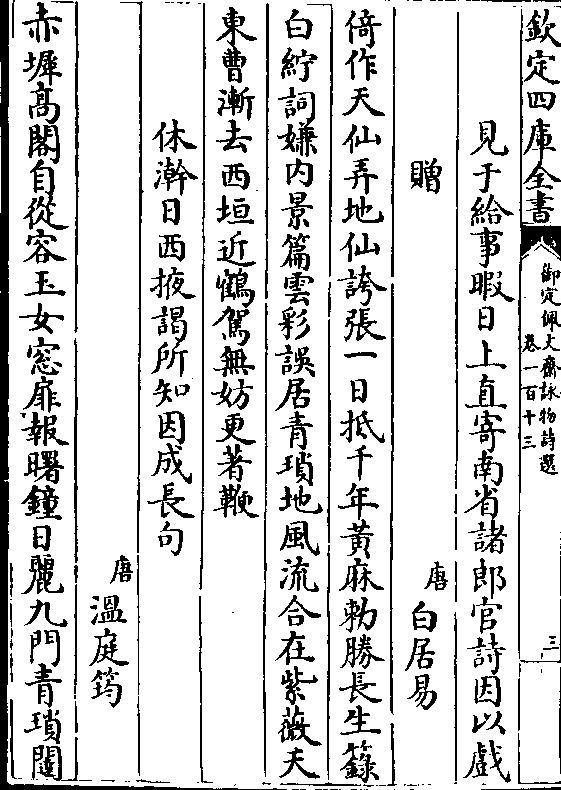 欽定四庫全書
御定佩文齋詠物詩選
卷一百十三
三
見于給事暇日上直寄南省諸郎官詩因以戲
贈
唐白居易
倚作天仙弄地仙誇張一日抵千年黃麻勅勝長生籙
白紵詞嫌內景篇雲彩誤居青瑣地風流合在紫薇天
東曹漸去西垣近鶴駕無妨更著鞭
休澣日西掖謁所知因成長句
唐溫庭筠
赤墀高閣自從容玉女窓扉報曙鐘日麗九門青瑣闥